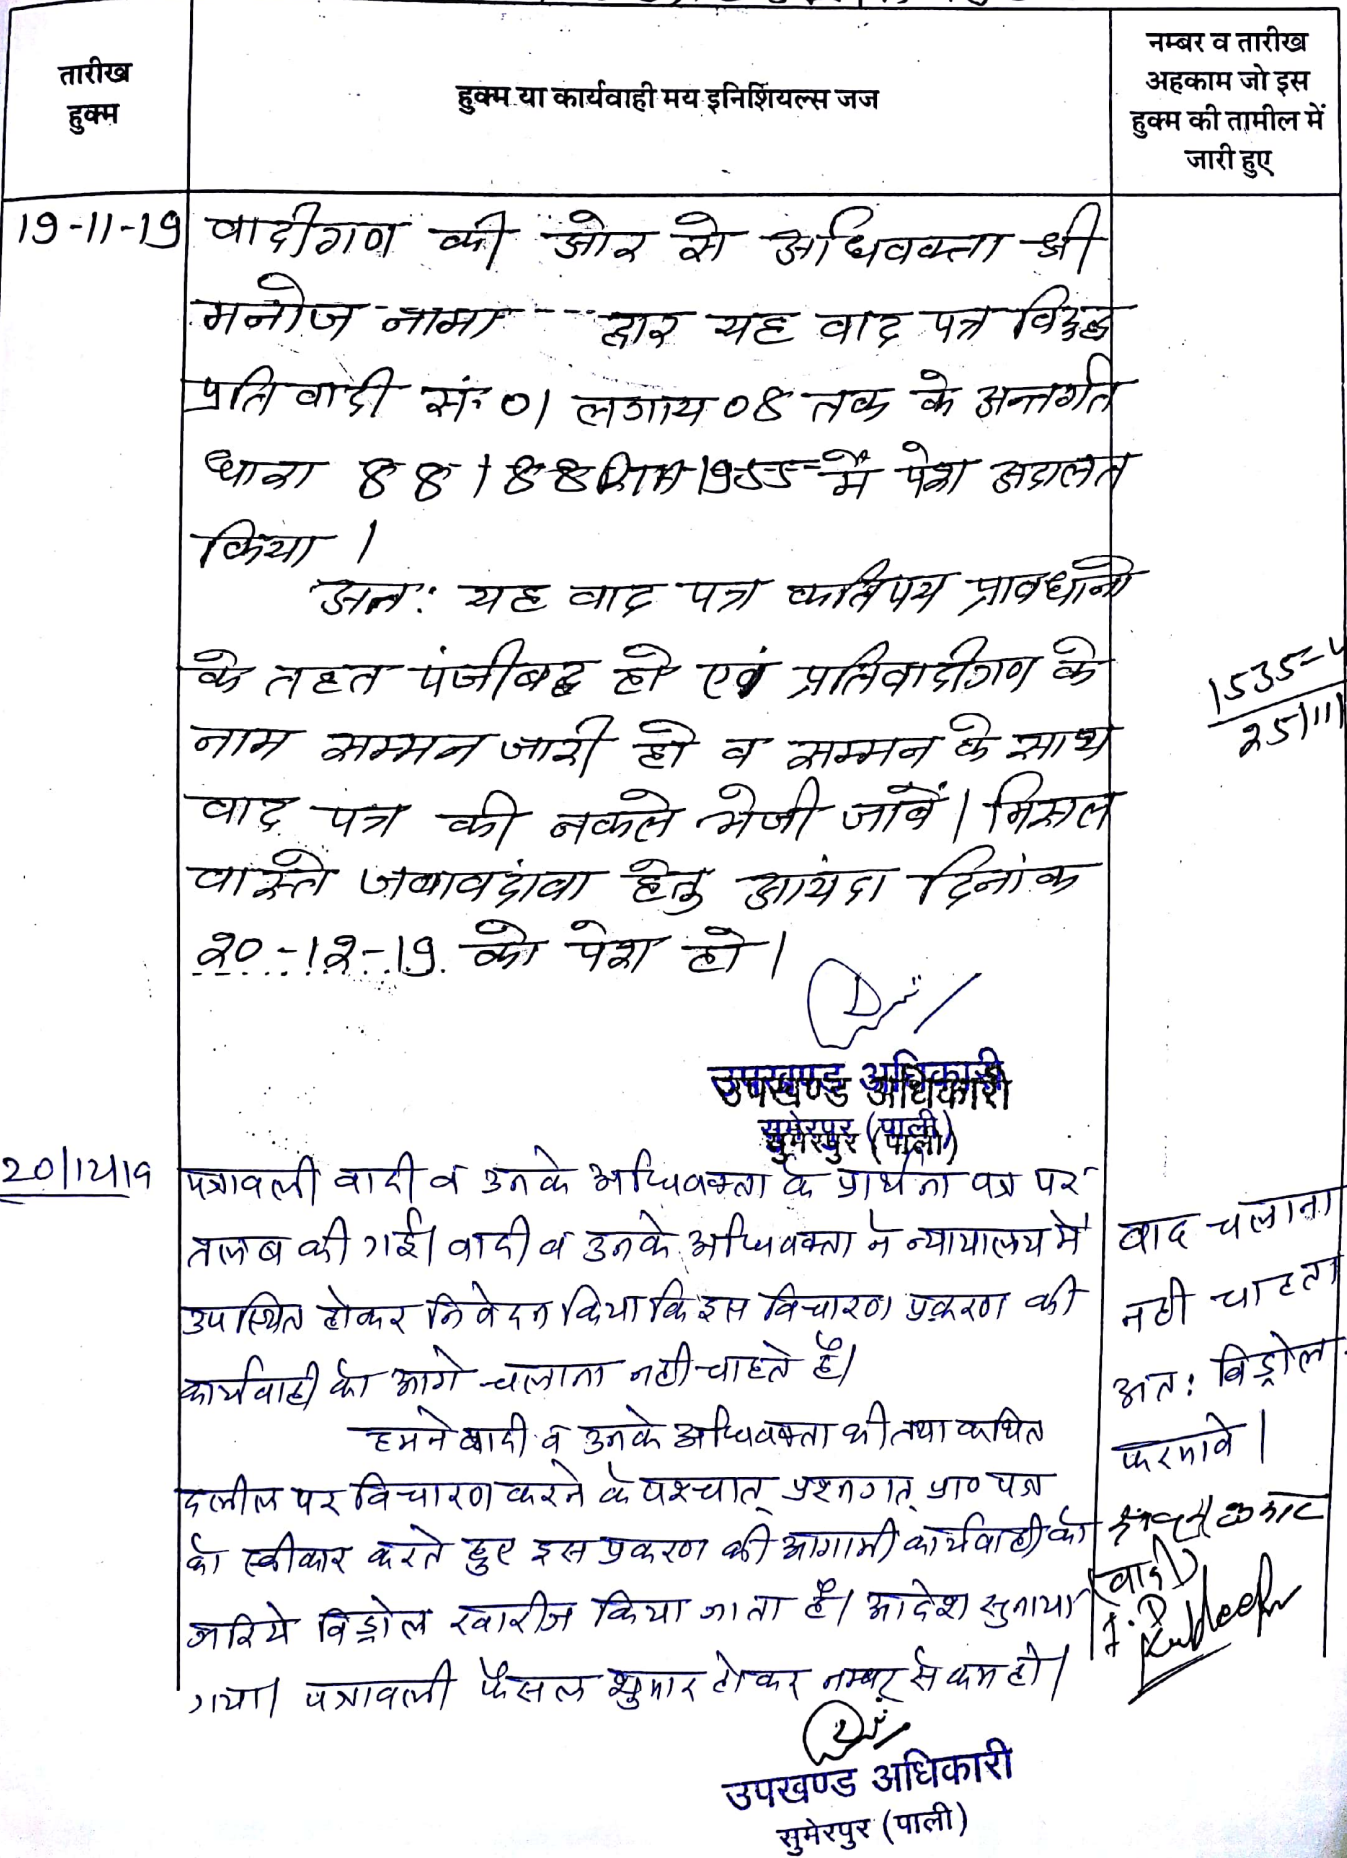 तारीख
हुक्म
हुक्म या कार्यवाही मय इनिशियल्स जज
नम्बर व तारीख
अहकाम जो इस
हुक्म की तामील में
जारी हुए
19-11-19
वादीगण की ओर से अधिवक्ता श्री
मनोज नामा द्वार यह वाद पत्र विरुद्ध
प्रतिवादी सं. 01 लगाय 08 तक के अन्तर्गत
धारा 88 188 1955 में पेश अदालत
किया ।
अत: यह वाद पत्र कतिपय प्रावधानो
के तहत पंजीबद्ध हो एवं प्रतिवादीगण के
नाम सम्मन जारी हो व सम्मन के साथ
वाद पत्र की नकले भेजी जावें । मिसल
वास्ते जवाबदावा हेतु आयंदा दिनांक
20-12-19 को पेश हो ।
1535
25/11
उपखण्ड अधिकारी
सुमेरपुर (पाली)
20/12/19
पत्रावली वादी व उनके अधिवक्ता के प्रार्थना पत्र पर
तलब की गई। वादी व उनके अधिवक्ता ने न्यायालय में
उपस्थित होकर निवेदन किया कि इस विचारण प्रकरण की
कार्यवाही को आगे चलाना नही चाहते है।
हमने वादी व उनके अधिवक्ता की तथा कथित
दलील पर विचारण करने के पश्चात् प्रश्नगत् प्रा० पत्र
को स्वीकार करते हुए इस प्रकरण की आगामी कार्यवाही को
जरिये विड्रोल खारीज किया जाता है। आदेश सुनाया
गया। पत्रावली फैसल शुमार होकर नम्बर से कम हो।
वाद चलाना
नही चाहता
अत: विड्रोल
फरमावे।
(वादी)
उपखण्ड अधिकारी
सुमेरपुर (पाली)